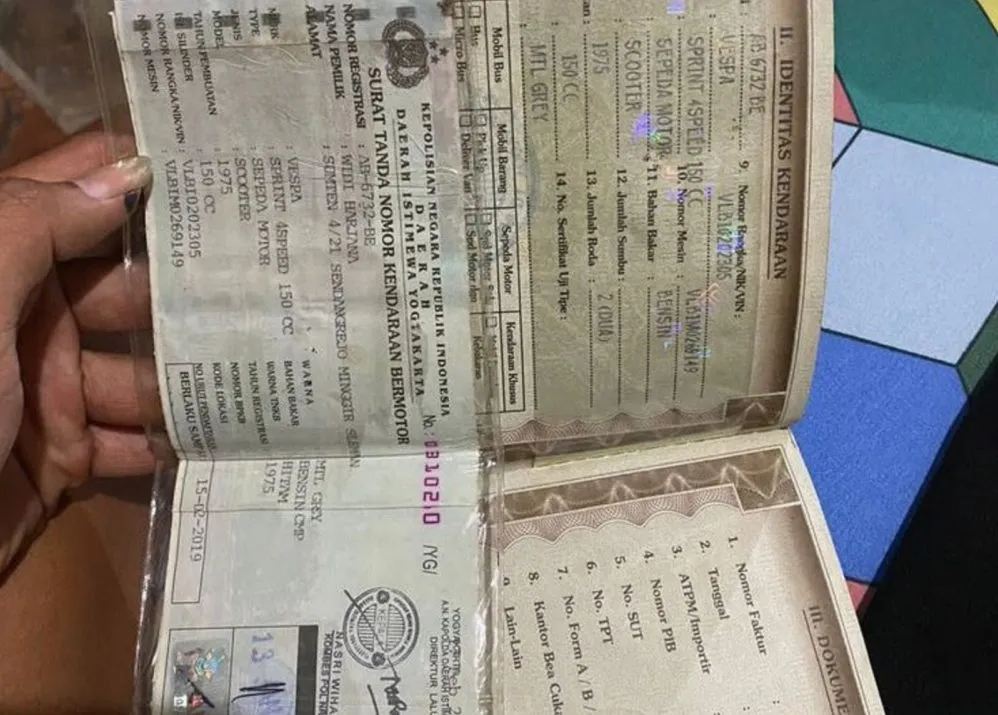 II. IDENTITAS KENDARAAN
AB 6732 BE
VESPA
SPRINT 4SPEED 150 CC
SEPEDA MOTOR
SCOOTER
1975
150 CC
MTL GREY
9. Nomor Rangka/NIK/VIN :
VLB10202305
10. Nomor Mesin : VLB1M0269149
11. Bahan Bakar : BENSIN
12. Jumlah Sumbu :
13. Jumlah Roda : 2 (DUA)
14. No. Sertifikat Uji Tipe :
Mobil Bus Mobil Barang Sepeda Motor Kendaraan Khusus
Bus Pick Up
Micro Bus Delivery Van
KEPOLISIAN NEGARA REPUBLIK INDONESIA
DAERAH
DAERAH ISTIMEWA YOGYAKARTA
SURAT TANDA NOMOR KENDARAAN BERMOTOR
No.: 0310210 /YG/
NOMOR REGISTRASI : AB-6732-BE
NAMA PEMILIK : WIDI HARJANA
ALAMAT : SUMTEN 4/21 SENDANGREJO MINGGIR SLEMAN
MERK : VESPA
TYPE : SPRINT 4SPEED 150 CC
JENIS : SEPEDA MOTOR
MODEL : SCOOTER
TAHUN PEMBUATAN : 1975
ISI SILINDER : 150 CC
NOMOR RANGKA/NIK/VIN : VLB10202305
NOMOR MESIN : VLB1M0269149
WARNA MTL GREY
BAHAN BAKAR BENSIN CMP
WARNA TNKB HITAM
TAHUN REGISTRASI 1975
NOMOR BPKB
KODE LOKASI
NO URUT PENDAFTARAN
BERLAKU SAMPAI 15-02-2019
A.N KAPOLDA DAERAH
DIREKTUR
NASRI
13
III. DOKUME
1. Nomor Faktur :
2. Tanggal :
3. ATPM/Importir
4. Nomor PIB
5. No. SUT
6. No. TPT
7. No. Form A / B /
8. Kantor Bea Cuka
9. Lain-Lain